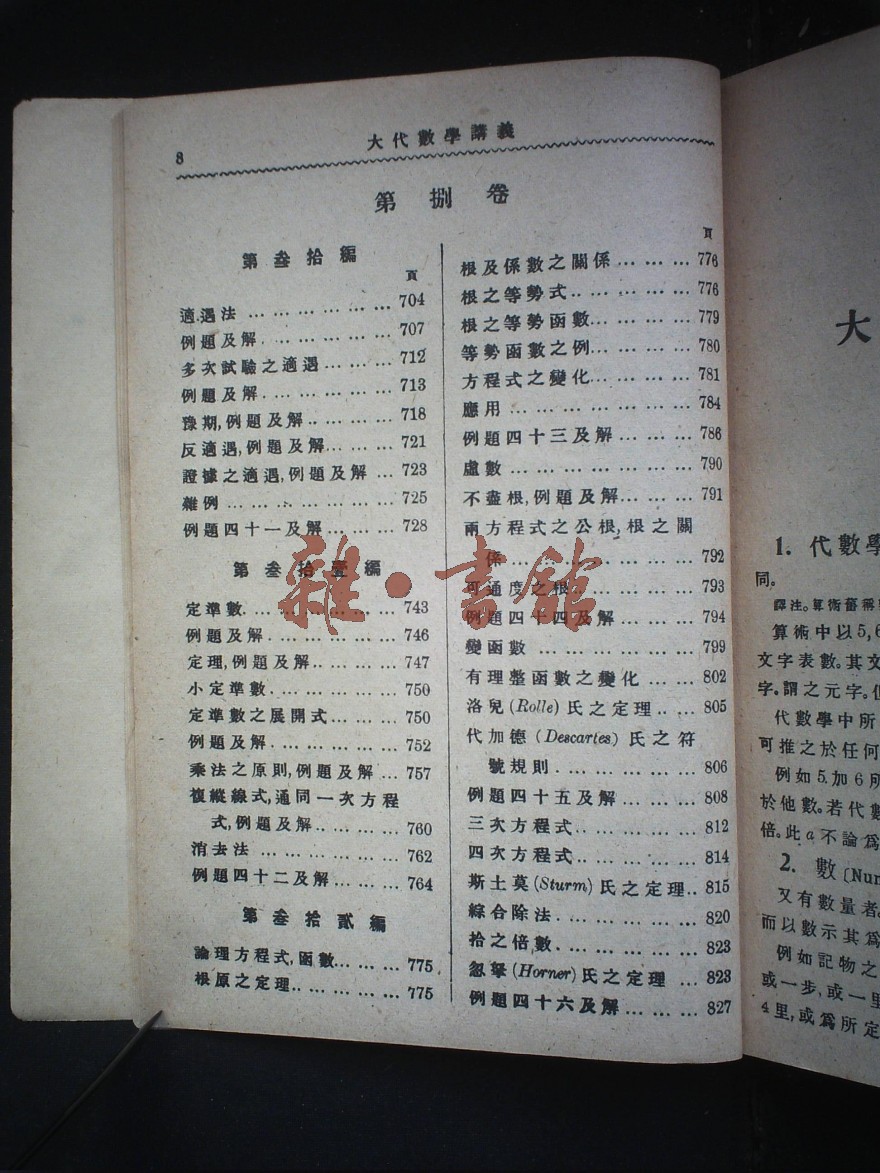 8
大代數學講義
第捌卷
第叁拾編
頁
適遇法 … … … … … … 704
例題及解 … … … … … 707
多次試驗之適遇 … … … 712
例題及解 … … … … … 713
豫期,例題及解 … … … … 718
反適遇,例題及解 … … … 721
證據之適遇,例題及解 … 723
雜例 … … … … … … … 725
例題四十一及解 … … … 728
第叁拾壹編
定準數 … … … … … … 743
例題及解 … … … … … 746
定理,例題及解 … … … … 747
小定準數 … … … … … 750
定準數之展開式 … … … 750
例題及解 … … … … … 752
乘法之原則,例題及解 … 757
複縱線式,通同一次方程
式,例題及解 … … … … 760
消去法 … … … … … … 762
例題四十二及解 … … … 764
第叁拾貳編
論理方程式,函數 … … … 775
根原之定理 … … … … … 775
頁
根及係數之關係 … … … 776
根之等勢式 … … … … … 776
根之等勢函數 … … … … 779
等勢函數之例 … … … … 780
方程式之變化 … … … … 781
應用 … … … … … … … 784
例題四十三及解 … … … 786
虛數 … … … … … … … 790
不盡根,例題及解 … … … 791
兩方程式之公根,根之關
係 … … … … … … … 792
可通度之根 … … … … … 793
例題四十四及解 … … … 794
變函數 … … … … … … 799
有理整函數之變化 … … 802
洛兒(Rolle)氏之定理 … … 805
代加德(Descartes)氏之符
號規則 … … … … … … 806
例題四十五及解 … … … 808
三次方程式 … … … … … 812
四次方程式 … … … … … 814
斯土莫(Sturm)氏之定理 … 815
綜合除法 … … … … … … 820
拾之倍數 … … … … … … 823
忽拏(Horner)氏之定理 … 823
例題四十六及解 … … … 827
雜·書館
大
1. 代數學
同。
譯注。算術舊稱
算術中以5,6
文字表數。其文
字。謂之元字。但
代數學中所
可推之於任何
例如5.加6所
於他數。若代數
倍。此a不論爲
2. 數〔Num
又有數量者。
而以數示其爲
例如記物之
或一步,或一里
4里,或爲所定